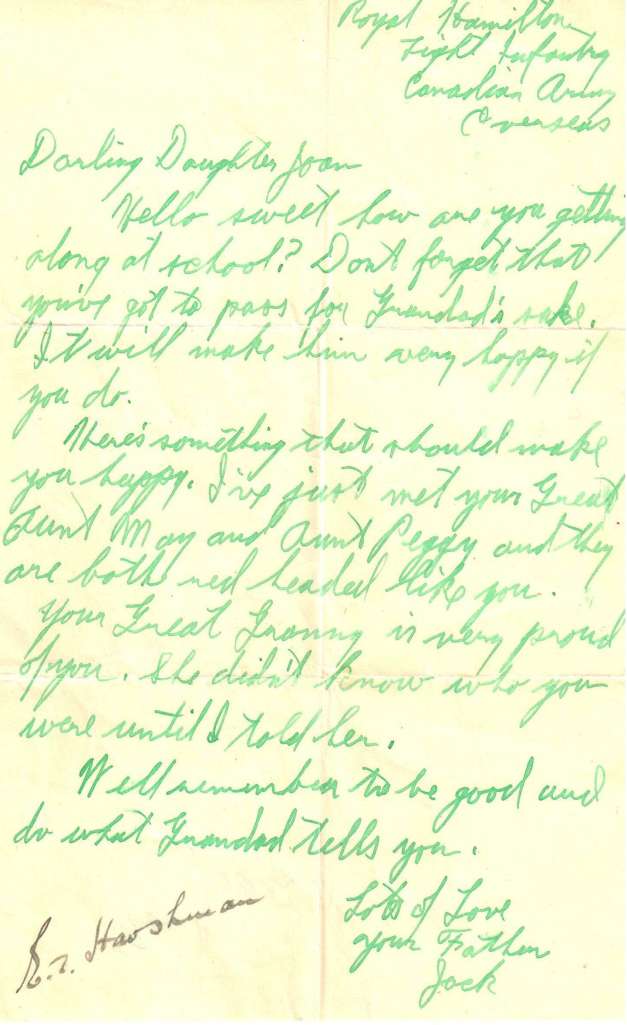 Royal Hamilton
Light Infantry
Canadian Army
Overseas
Darling Daughter Joan
Hello sweet how are you getting
along at school? Don't forget that
you've got to pass for Grandad's sake.
It will make him very happy if
you do.
Here's something that should make
you happy. I've just met your Great
Aunt May and Aunt Peggy and they
are both red headed like you.
Your Great Granny is very proud
of you. She didn't know who you
were until I told her.
Well remember to be good and
do what Grandad tells you.
Lots of Love
your Father
Jack
Harshman